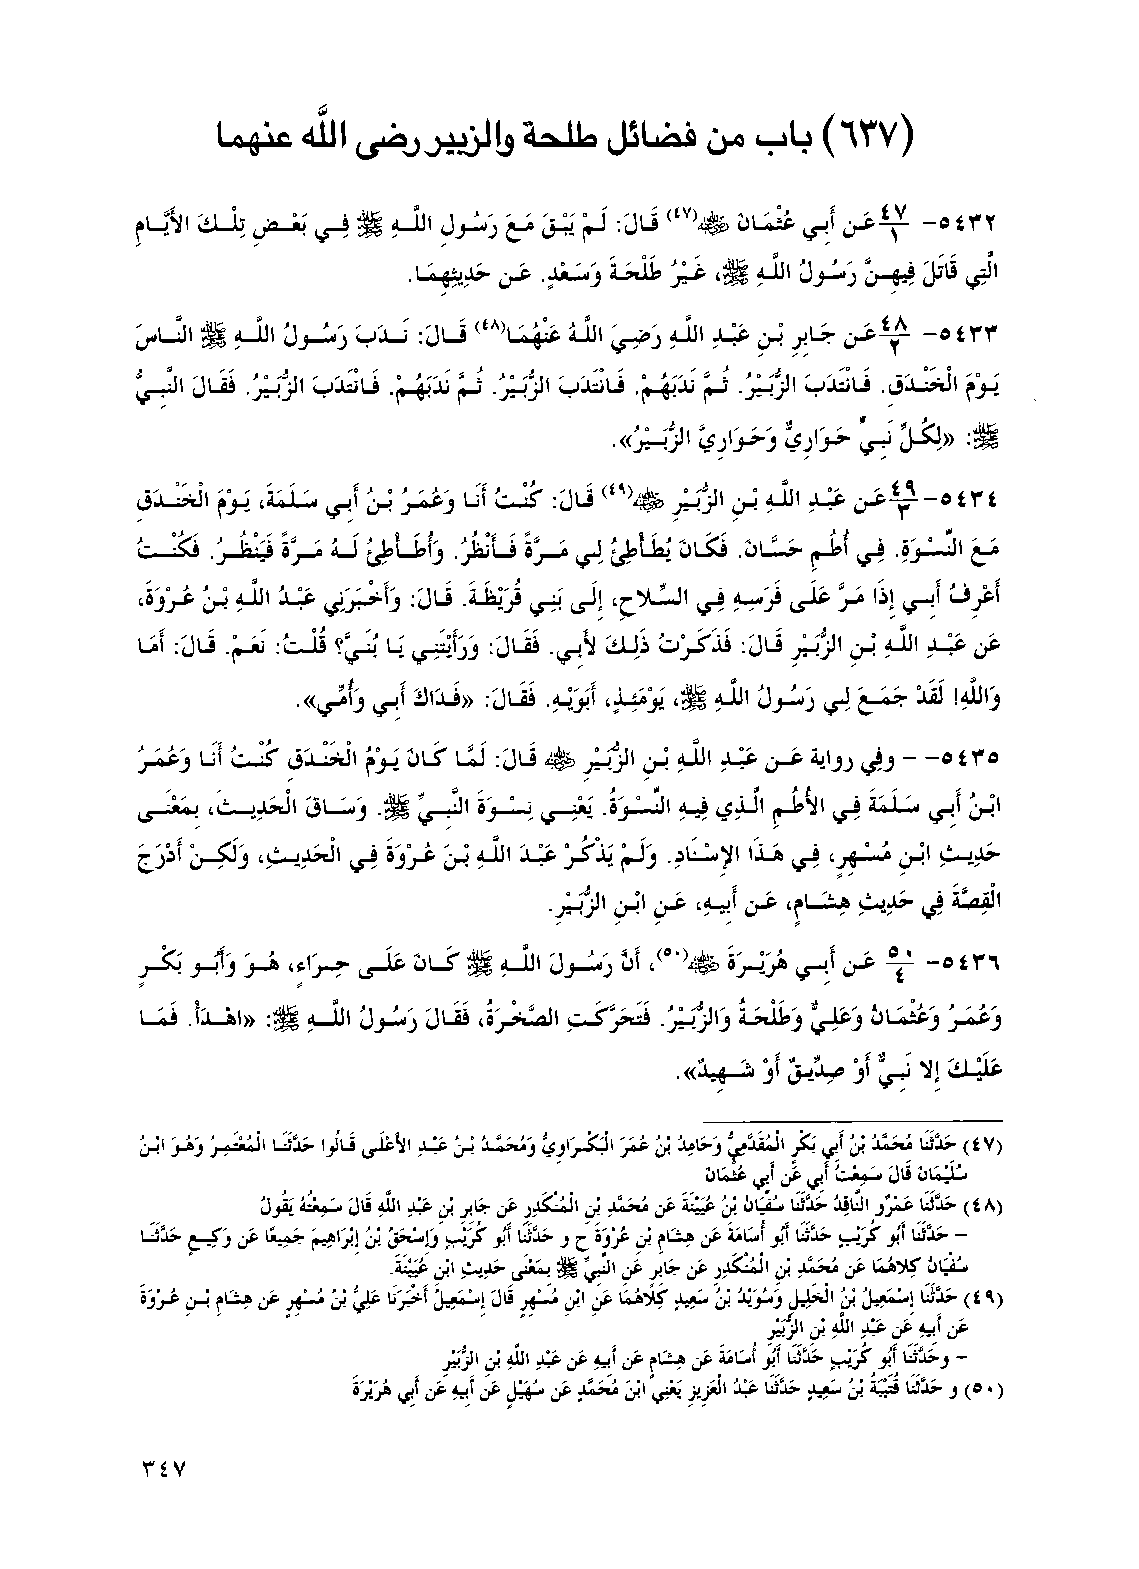 (٦٣٧) باب من فضائل طلحة والزبير رضى اللَّه عنهما
٥٤٣٢- ٤٧/١ عَن أَبِي عُثْمَانَ ﷺ(٤٧) قَالَ: لَمْ يَبْقَ مَعَ رَسُولِ اللَّهِ ﷺ فِي بَعْضِ تِلْكَ الأَيَّامِ
الَّتِي قَاتَلَ فِيهِنَّ رَسُولُ اللَّهِ ﷺ، غَيْرُ طَلْحَةَ وَسَعْدٍ. عَن حَدِيثِهِمَا.
٥٤٣٣- ٤٨/٢ عَن جَابِرِ بْنِ عَبْدِ اللَّهِ رَضِيَ اللَّهُ عَنْهُمَا(٤٨) قَالَ: نَدَبَ رَسُولُ اللَّهِ ﷺ النَّاسَ
يَوْمَ الْخَنْدَقِ. فَانْتَدَبَ الزُّبَيْرُ. ثُمَّ نَدَبَهُمْ. فَانْتَدَبَ الزُّبَيْرُ. ثُمَّ نَدَبَهُمْ. فَانْتَدَبَ الزُّبَيْرُ. فَقَالَ النَّبِيُّ
ﷺ: «لِكُلِّ نَبِيٍّ حَوَارِيٌّ وَحَوَارِيَّ الزُّبَيْرُ».
٥٤٣٤- ٤٩/٣ عَن عَبْدِ اللَّهِ بْنِ الزُّبَيْرِ ﷺ(٤٩) قَالَ: كُنْتُ أَنَا وَعُمَرُ بْنُ أَبِي سَلَمَةَ، يَوْمَ الْخَنْدَقِ
مَعَ النِّسْوَةِ. فِي أُطُمِ حَسَّانَ. فَكَانَ يُطَأْطِئُ لِي مَرَّةً فَأَنْظُرُ. وَأُطَأْطِئُ لَهُ مَرَّةً فَيَنْظُرُ. فَكُنْتُ
أَعْرِفُ أَبِي إِذَا مَرَّ عَلَى فَرَسِهِ فِي السِّلاحِ، إِلَى بَنِي قُرَيْظَةَ. قَالَ: وَأَخْبَرَنِي عَبْدُ اللَّهِ بْنُ عُرْوَةَ،
عَن عَبْدِ اللَّهِ بْنِ الزُّبَيْرِ قَالَ: فَذَكَرْتُ ذَلِكَ لأَبِي. فَقَالَ: وَرَأَيْتَنِي يَا بُنَيَّ؟ قُلْتُ: نَعَمْ. قَالَ: أَمَا
وَاللَّهِ! لَقَدْ جَمَعَ لِي رَسُولُ اللَّهِ ﷺ، يَوْمَئِذٍ، أَبَوَيْهِ. فَقَالَ: «فَدَاكَ أَبِي وَأُمِّي».
٥٤٣٥- – وفِي رواية عَن عَبْدِ اللَّهِ بْنِ الزُّبَيْرِ ﷺ قَالَ: لَمَّا كَانَ يَوْمُ الْخَنْدَقِ كُنْتُ أَنَا وَعُمَرُ
ابْنُ أَبِي سَلَمَةَ فِي الأُطُمِ الَّذِي فِيهِ النِّسْوَةُ. يَعْنِي نِسْوَةَ النَّبِيِّ ﷺ. وَسَاقَ الْحَدِيثَ، بِمَعْنَى
حَدِيثِ ابْنِ مُسْهِرٍ، فِي هَذَا الإِسْنَادِ. وَلَمْ يَذْكُرْ عَبْدَ اللَّهِ بْنَ عُرْوَةَ فِي الْحَدِيثِ، وَلَكِنْ أَدْرَجَ
الْقِصَّةَ فِي حَدِيثِ هِشَامٍ، عَن أَبِيهِ، عَنِ ابْنِ الزُّبَيْرِ.
٥٤٣٦- ٥٠/٤ عَن أَبِي هُرَيْرَةَ ﷺ(٥٠)، أَنَّ رَسُولَ اللَّهِ ﷺ كَانَ عَلَى حِرَاءٍ، هُوَ وَأَبُو بَكْرٍ
وَعُمَرُ وَعُثْمَانُ وَعَلِيٌّ وَطَلْحَةُ وَالزُّبَيْرُ. فَتَحَرَّكَتِ الصَّخْرَةُ، فَقَالَ رَسُولُ اللَّهِ ﷺ: «اهْدَأْ. فَمَا
عَلَيْكَ إِلا نَبِيٌّ أَوْ صِدِّيقٌ أَوْ شَهِيدٌ».
(٤٧) حَدَّثَنَا مُحَمَّدُ بْنُ أَبِي بَكْرٍ الْمُقَدَّمِيُّ وَحَامِدُ بْنُ عُمَرَ الْبَكْرَاوِيُّ وَمُحَمَّدُ بْنُ عَبْدِ الأَعْلَى قَالُوا حَدَّثَنَا الْمُعْتَمِرُ وَهُوَ ابْنُ
سُلَيْمَانَ قَالَ سَمِعْتُ أَبِي عَن أَبِي عُثْمَانَ
(٤٨) حَدَّثَنَا عَمْرٌو النَّاقِدُ حَدَّثَنَا سُفْيَانُ بْنُ عُيَيْنَةَ عَن مُحَمَّدِ بْنِ الْمُنْكَدِرِ عَن جَابِرِ بْنِ عَبْدِ اللَّهِ قَالَ سَمِعْتُهُ يَقُولُ
– حَدَّثَنَا أَبُو كُرَيْبٍ حَدَّثَنَا أَبُو أُسَامَةَ عَن هِشَامِ بْنِ عُرْوَةَ ح و حَدَّثَنَا أَبُو كُرَيْبٍ وَإِسْحَقُ بْنُ إِبْرَاهِيمَ جَمِيعًا عَن وَكِيعٍ حَدَّثَنَا
سُفْيَانُ كِلاهُمَا عَن مُحَمَّدِ بْنِ الْمُنْكَدِرِ عَن جَابِرٍ عَن النَّبِيِّ ﷺ بِمَعْنَى حَدِيثِ ابْنِ عُيَيْنَةَ.
(٤٩) حَدَّثَنَا إِسْمَعِيلُ بْنُ الْخَلِيلِ وَسُوَيْدُ بْنُ سَعِيدٍ كِلاهُمَا عَن ابْنِ مُسْهِرٍ قَالَ إِسْمَعِيلُ أَخْبَرَنَا عَلِيُّ بْنُ مُسْهِرٍ عَن هِشَامِ بْنِ عُرْوَةَ
عَن أَبِيهِ عَن عَبْدِ اللَّهِ بْنِ الزُّبَيْرِ
– وحَدَّثَنَا أَبُو كُرَيْبٍ حَدَّثَنَا أَبُو أُسَامَةَ عَن هِشَامٍ عَن أَبِيهِ عَن عَبْدِ اللَّهِ بْنِ الزُّبَيْرِ
(٥٠) و حَدَّثَنَا قُتَيْبَةُ بْنُ سَعِيدٍ حَدَّثَنَا عَبْدُ الْعَزِيزِ يَعْنِي ابْنَ مُحَمَّدٍ عَن سُهَيْلٍ عَن أَبِيهِ عَن أَبِي هُرَيْرَةَ
٣٤٧